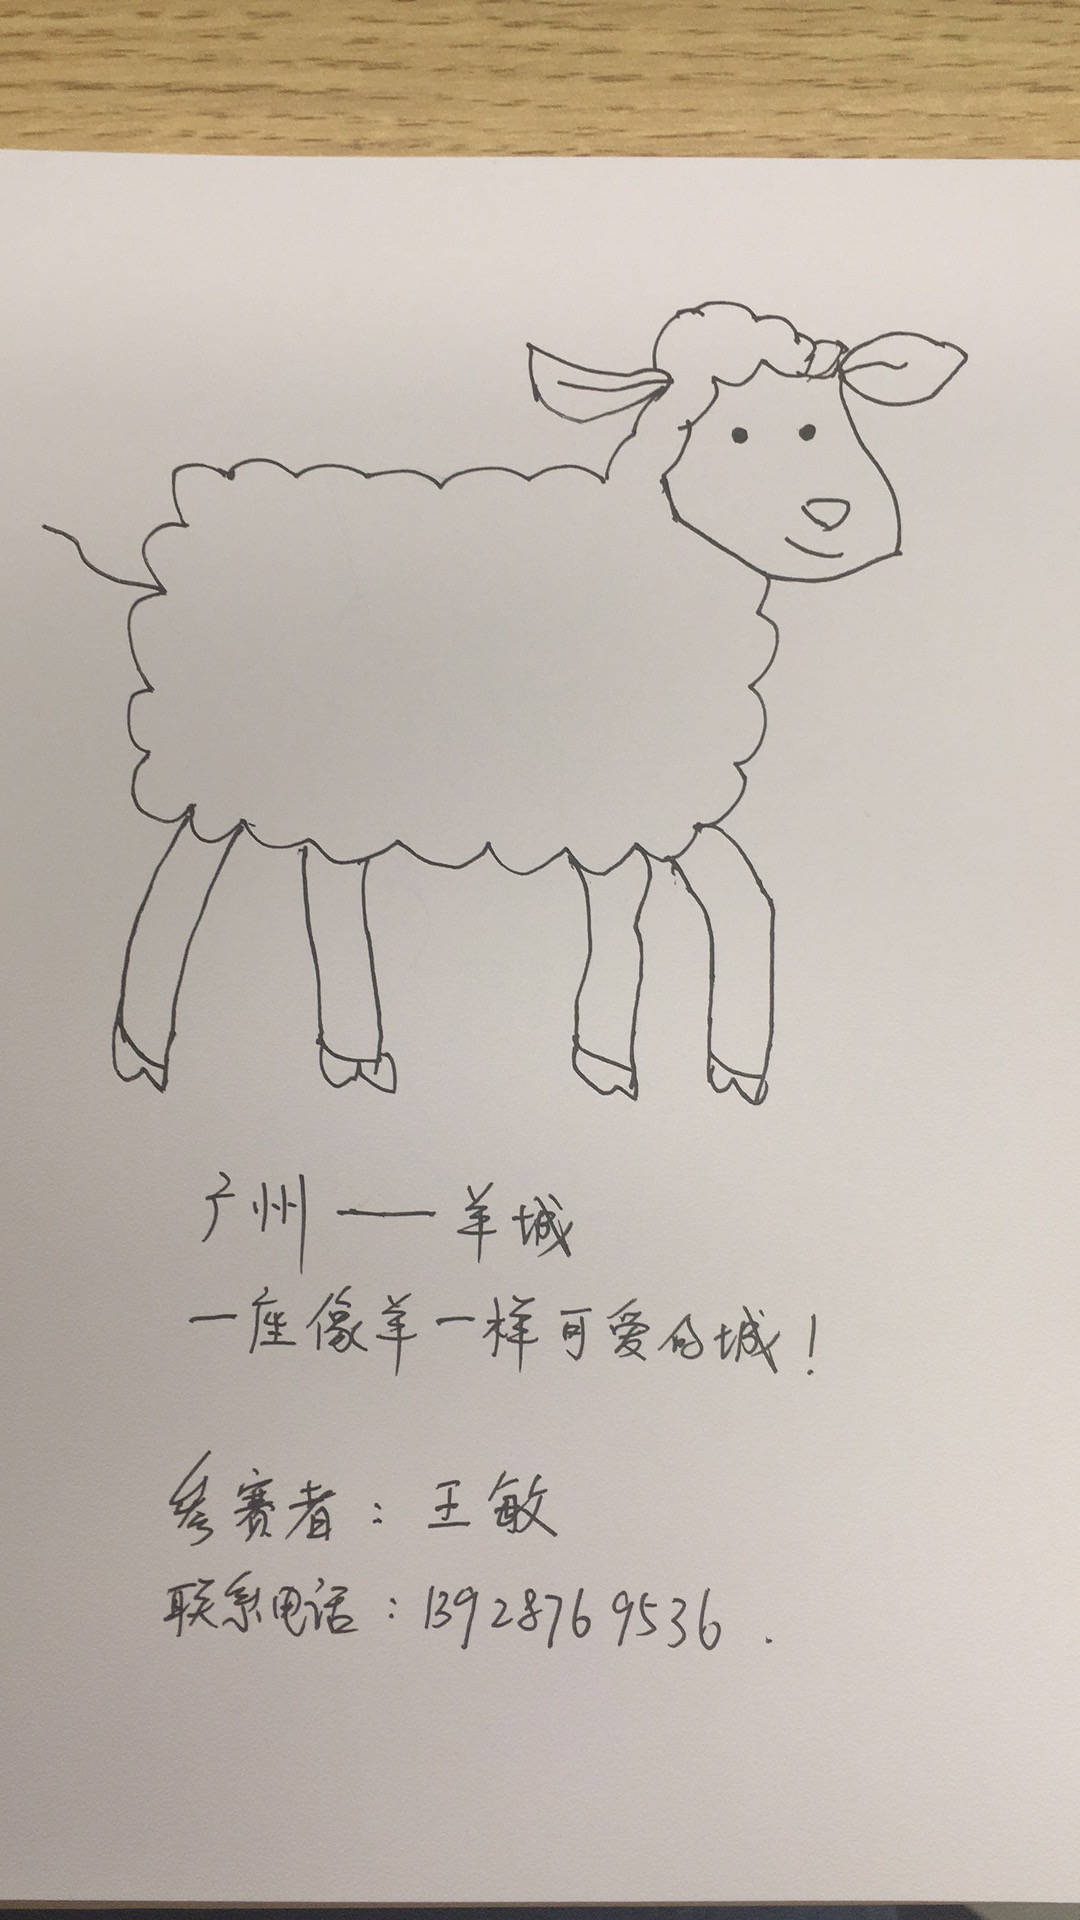 广州——羊城
一座像羊一样可爱的城！
参赛者：王敏
联系电话：13928769536.